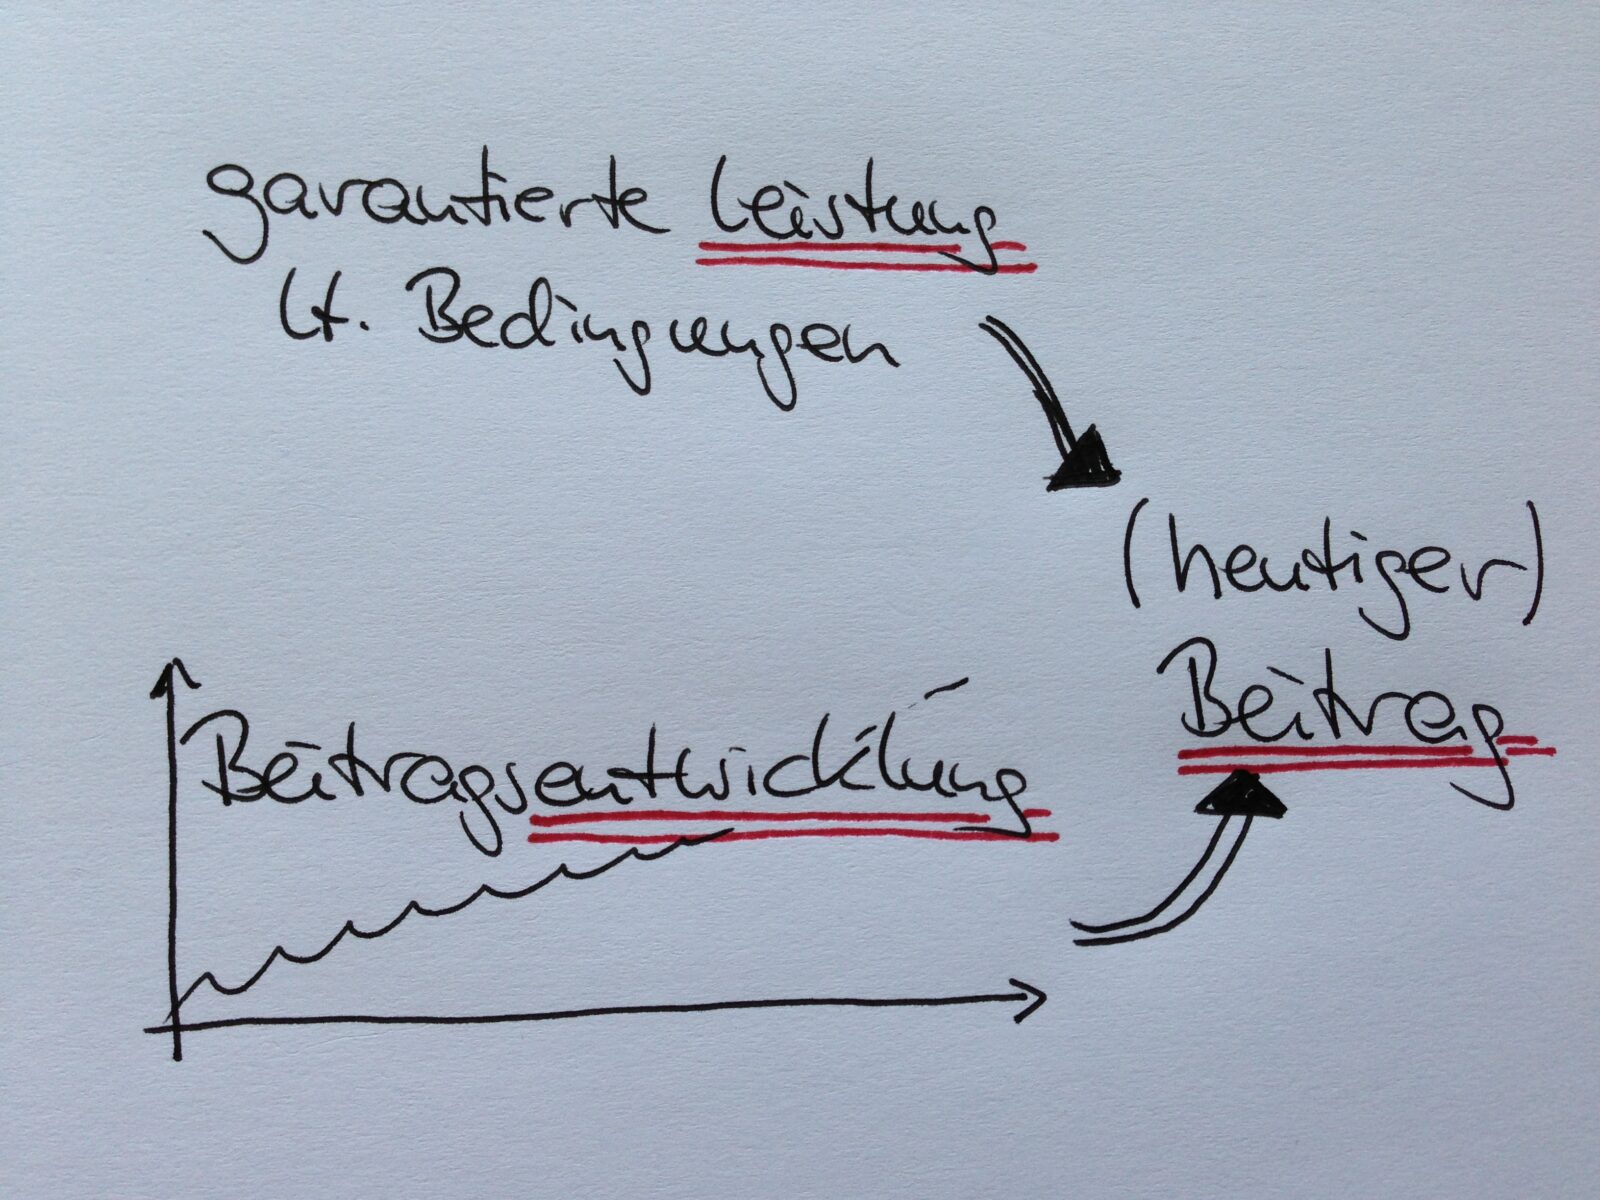 garantierte Leistung
lt. Bedingungen
(heutiger)
Beitrag
Beitragsentwicklung